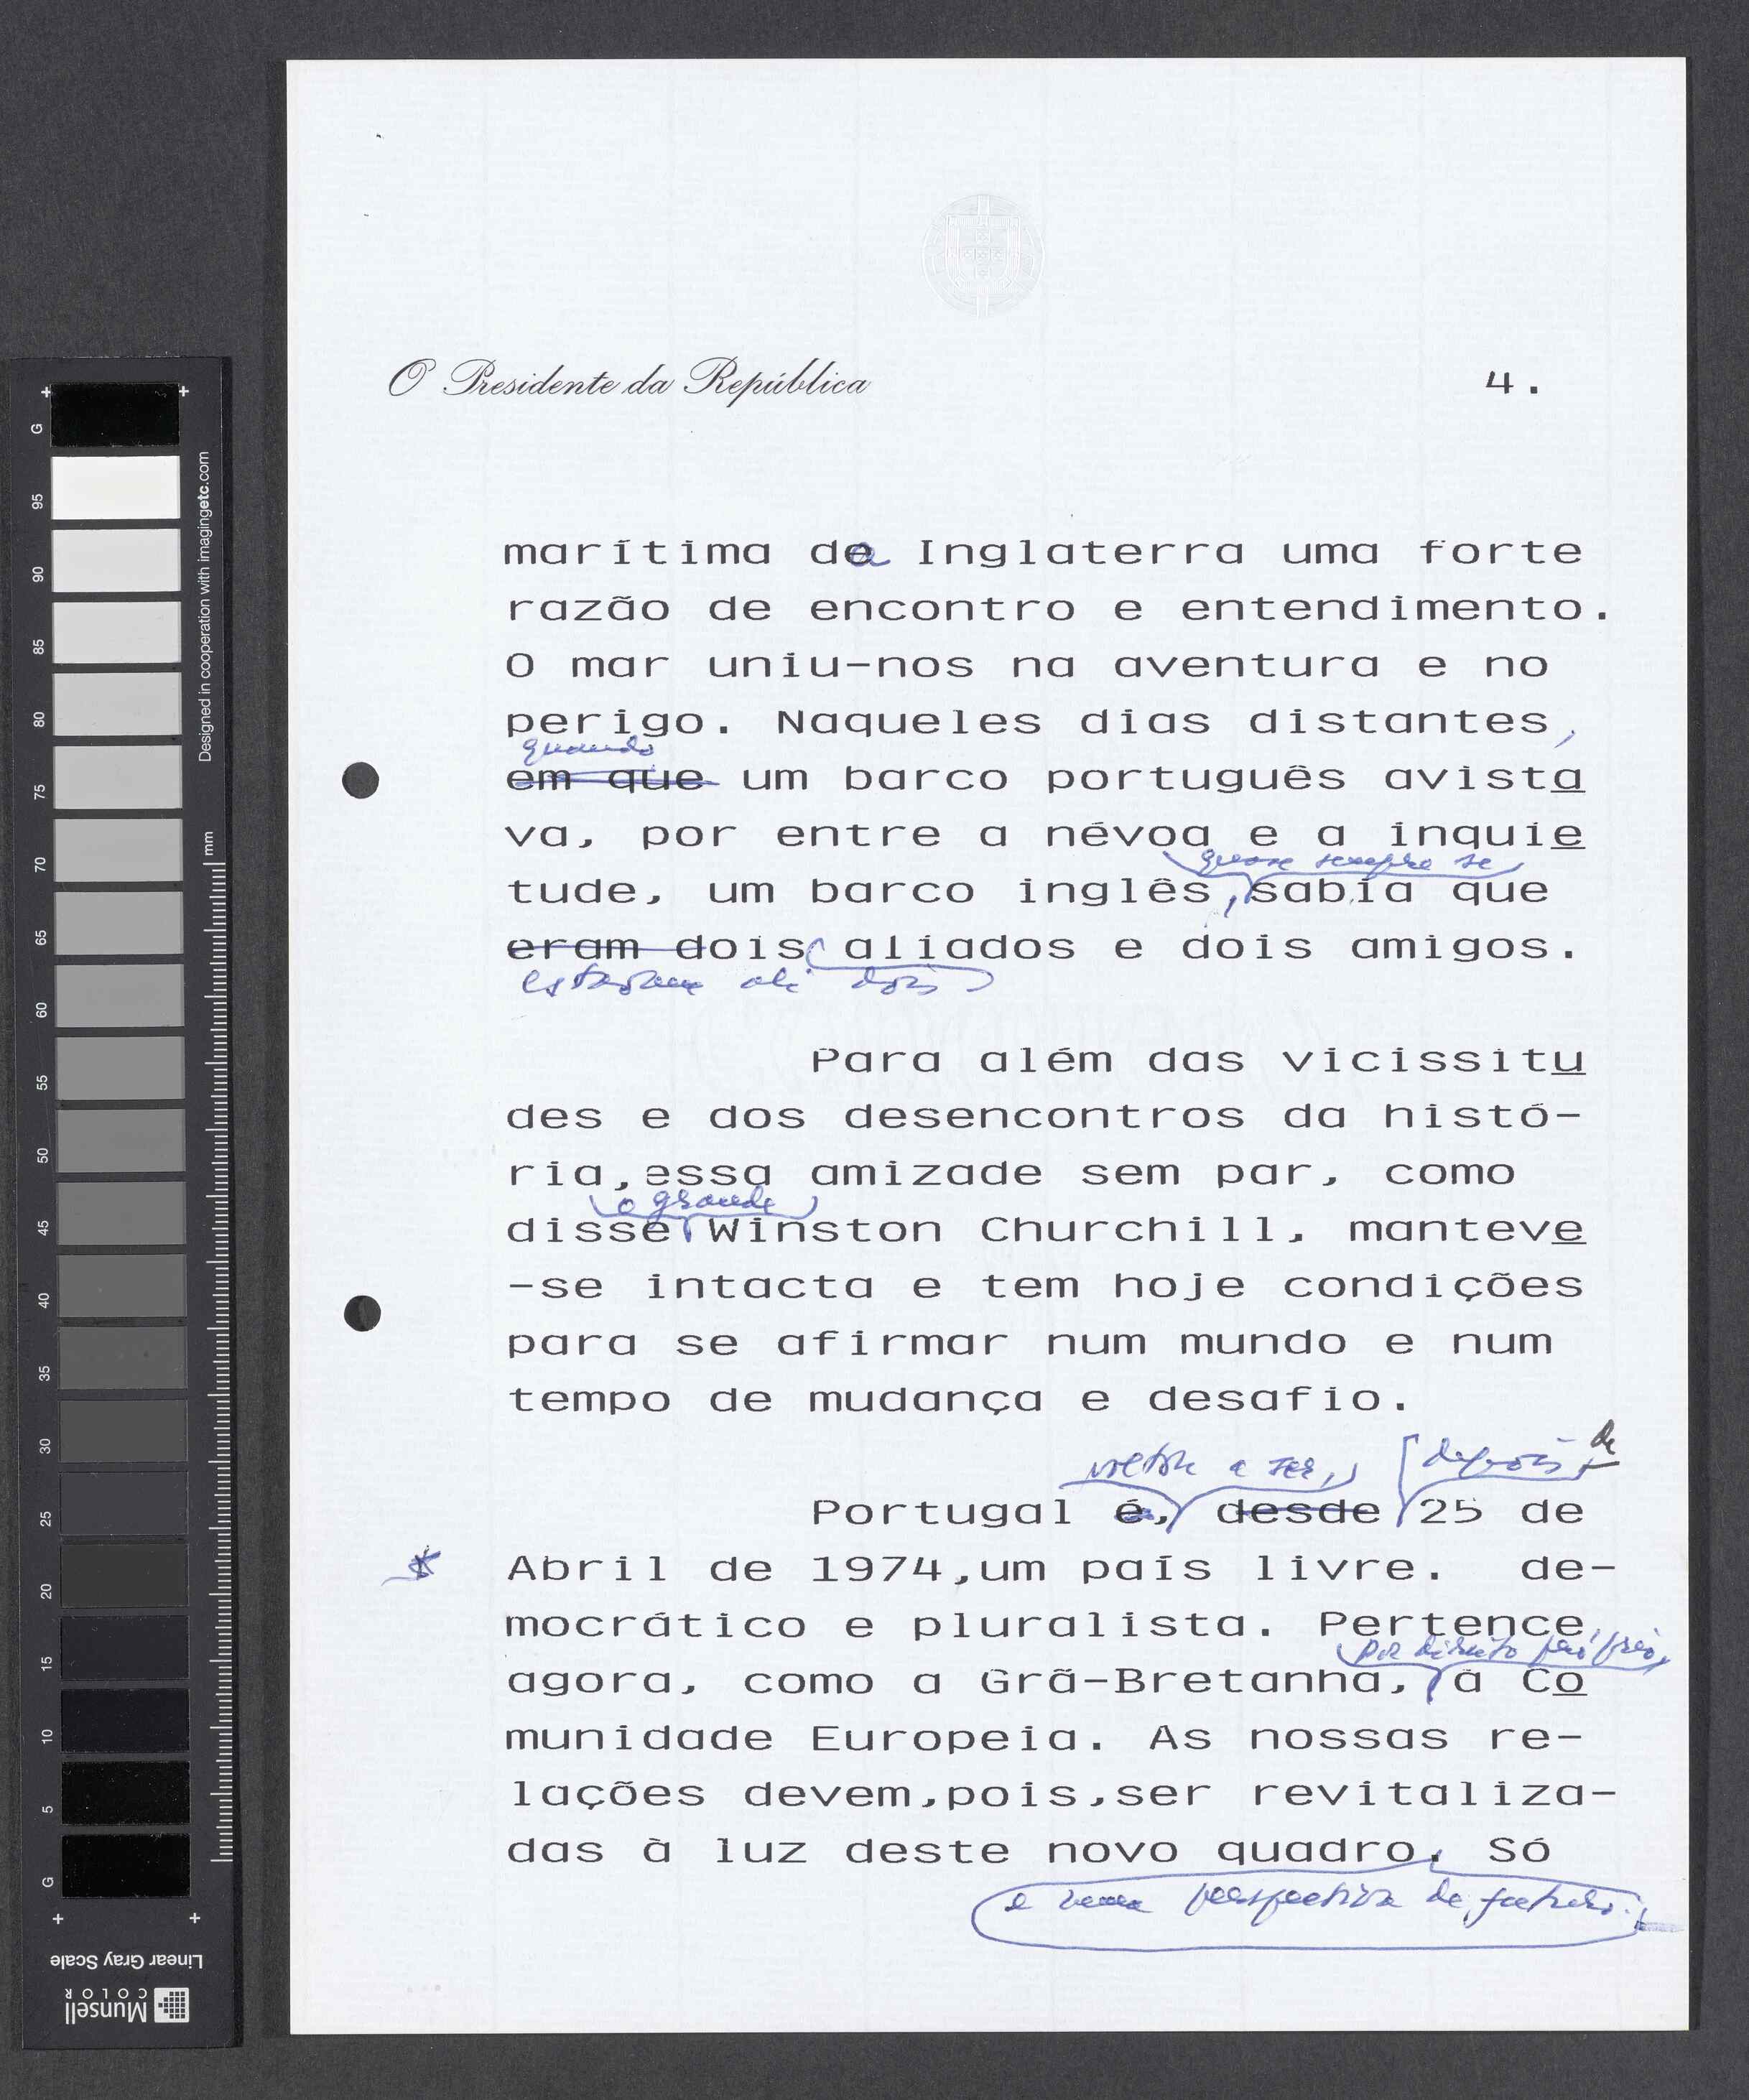 O Presidente da República
4.
marítima da Inglaterra uma forte
razão de encontro e entendimento.
O mar uniu-nos na aventura e no
perigo. Naqueles dias distantes,
quando
em que um barco português avista
va, por entre a névoa e a inquie
quase sempre se
tude, um barco inglês, sabia que
eram dois aliados e dois amigos.
estavam ali dois
Para além das vicissitu
des e dos desencontros da histó-
ria,essa amizade sem par, como
o grande
disse Winston Churchill, manteve
-se intacta e tem hoje condições
para se afirmar num mundo e num
tempo de mudança e desafio.
voltou a ser, depois de
Portugal é, desde 25 de
* Abril de 1974,um país livre. de-
mocrático e pluralista. Pertence,
por direito próprio,
agora, como a Grã-Bretanha, à Co
munidade Europeia. As nossas re-
lações devem,pois,ser revitaliza-
das à luz deste novo quadro. Só
e numa perspectiva de futuro.
G
95
90
85
80
75
70
65
60
55
50
45
40
35
30
25
20
15
10
5
G
Designed in cooperation with imagingetc.com
mm
Linear Gray Scale
Munsell
COLOR